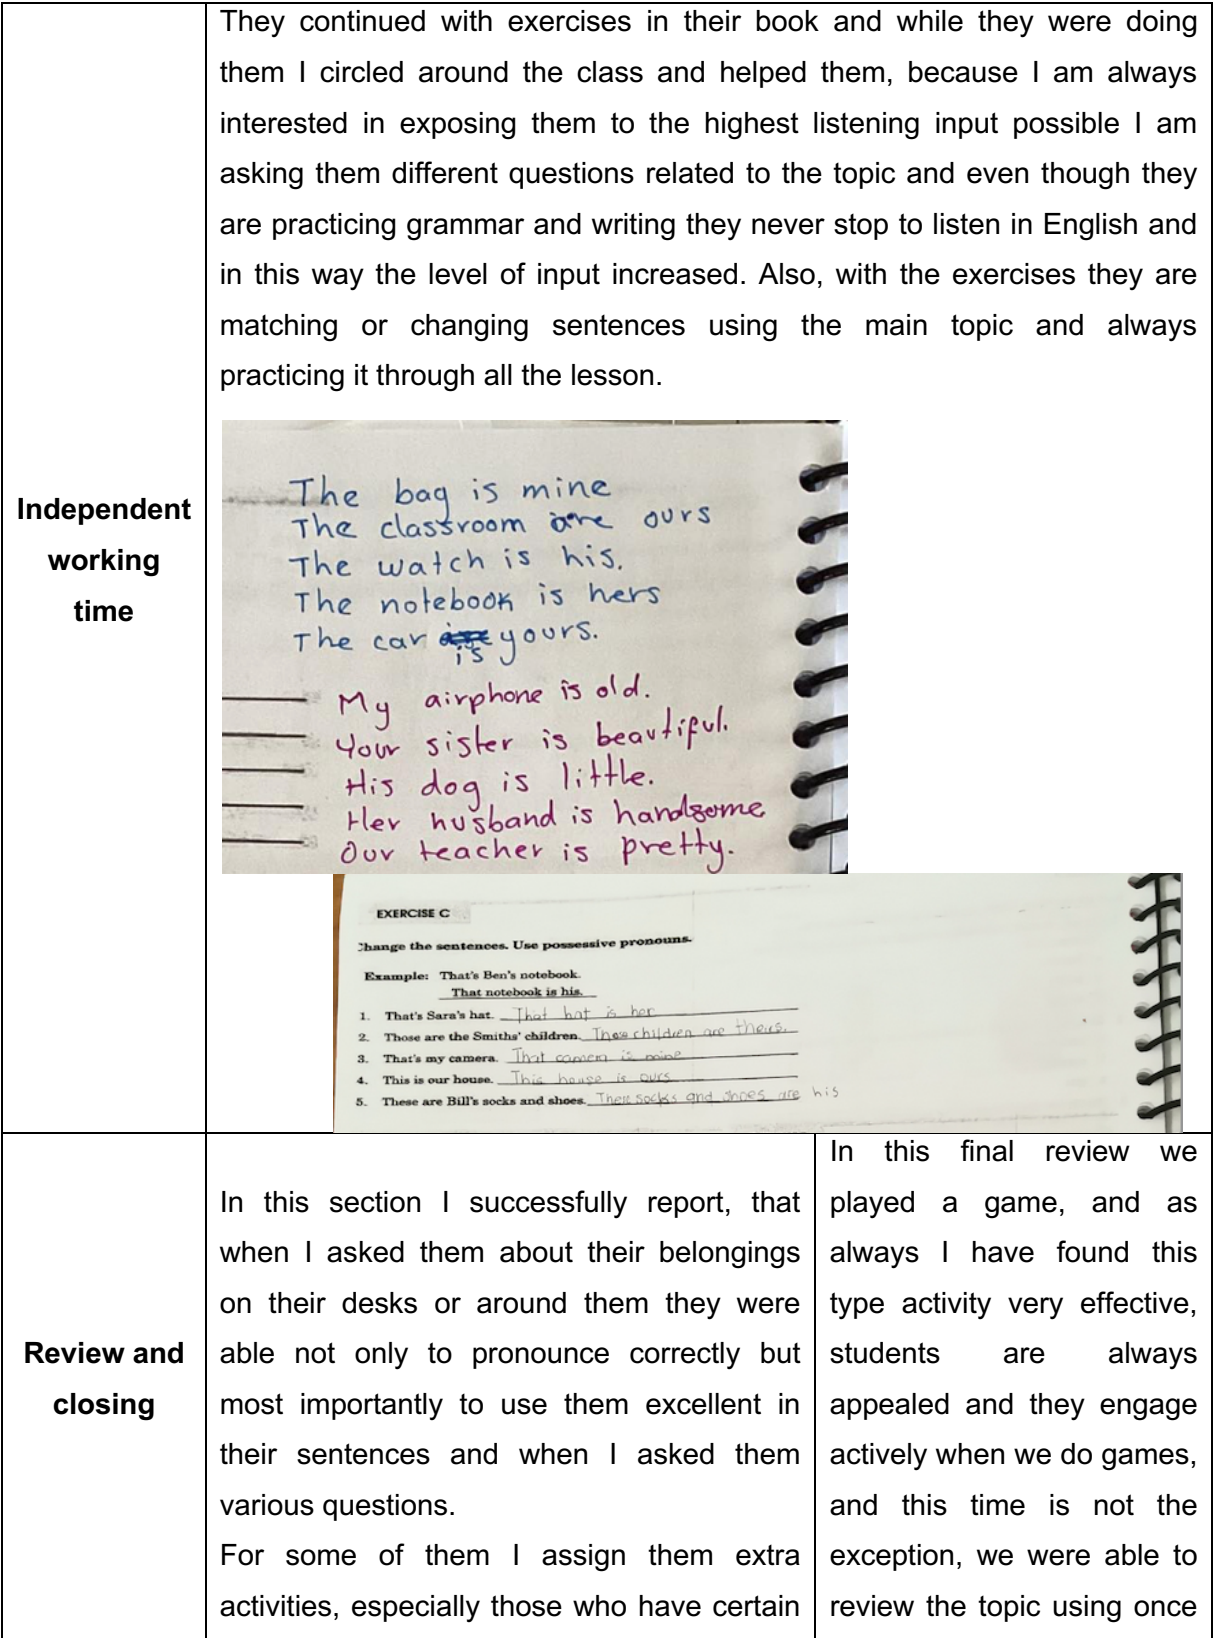 They continued with exercises in their book and while they were doing
them I circled around the class and helped them, because I am always
interested in exposing them to the highest listening input possible I am
asking them different questions related to the topic and even though they
are practicing grammar and writing they never stop to listen in English and
in this way the level of input increased. Also, with the exercises they are
matching or changing sentences using the main topic and always
practicing it through all the lesson.
Independent
working
time
The bag is mine
The classroom are ours
The watch is his.
The notebook is hers
The car is yours.
My airphone is old.
Your sister is beautiful.
His dog is little.
Her husband is handsome
Our teacher is pretty.
EXERCISE C
Change the sentences. Use possessive pronouns.
Example: That's Ben's notebook.
That notebook is his.
1. That's Sara's hat. That hat is her
2. Those are the Smiths' children. children are theirs.
3. That's my camera. That camera is mine
4. This is our house. This house is ours
5. These are Bill's socks and shoes. socks and shoes are his
Review and
closing
In this section I successfully report, that
when I asked them about their belongings
on their desks or around them they were
able not only to pronounce correctly but
most importantly to use them excellent in
their sentences and when I asked them
various questions.
For some of them I assign them extra
activities, especially those who have certain
In this final review we
played a game, and as
always I have found this
type activity very effective,
students are always
appealed and they engage
actively when we do games,
and this time is not the
exception, we were able to
review the topic using once